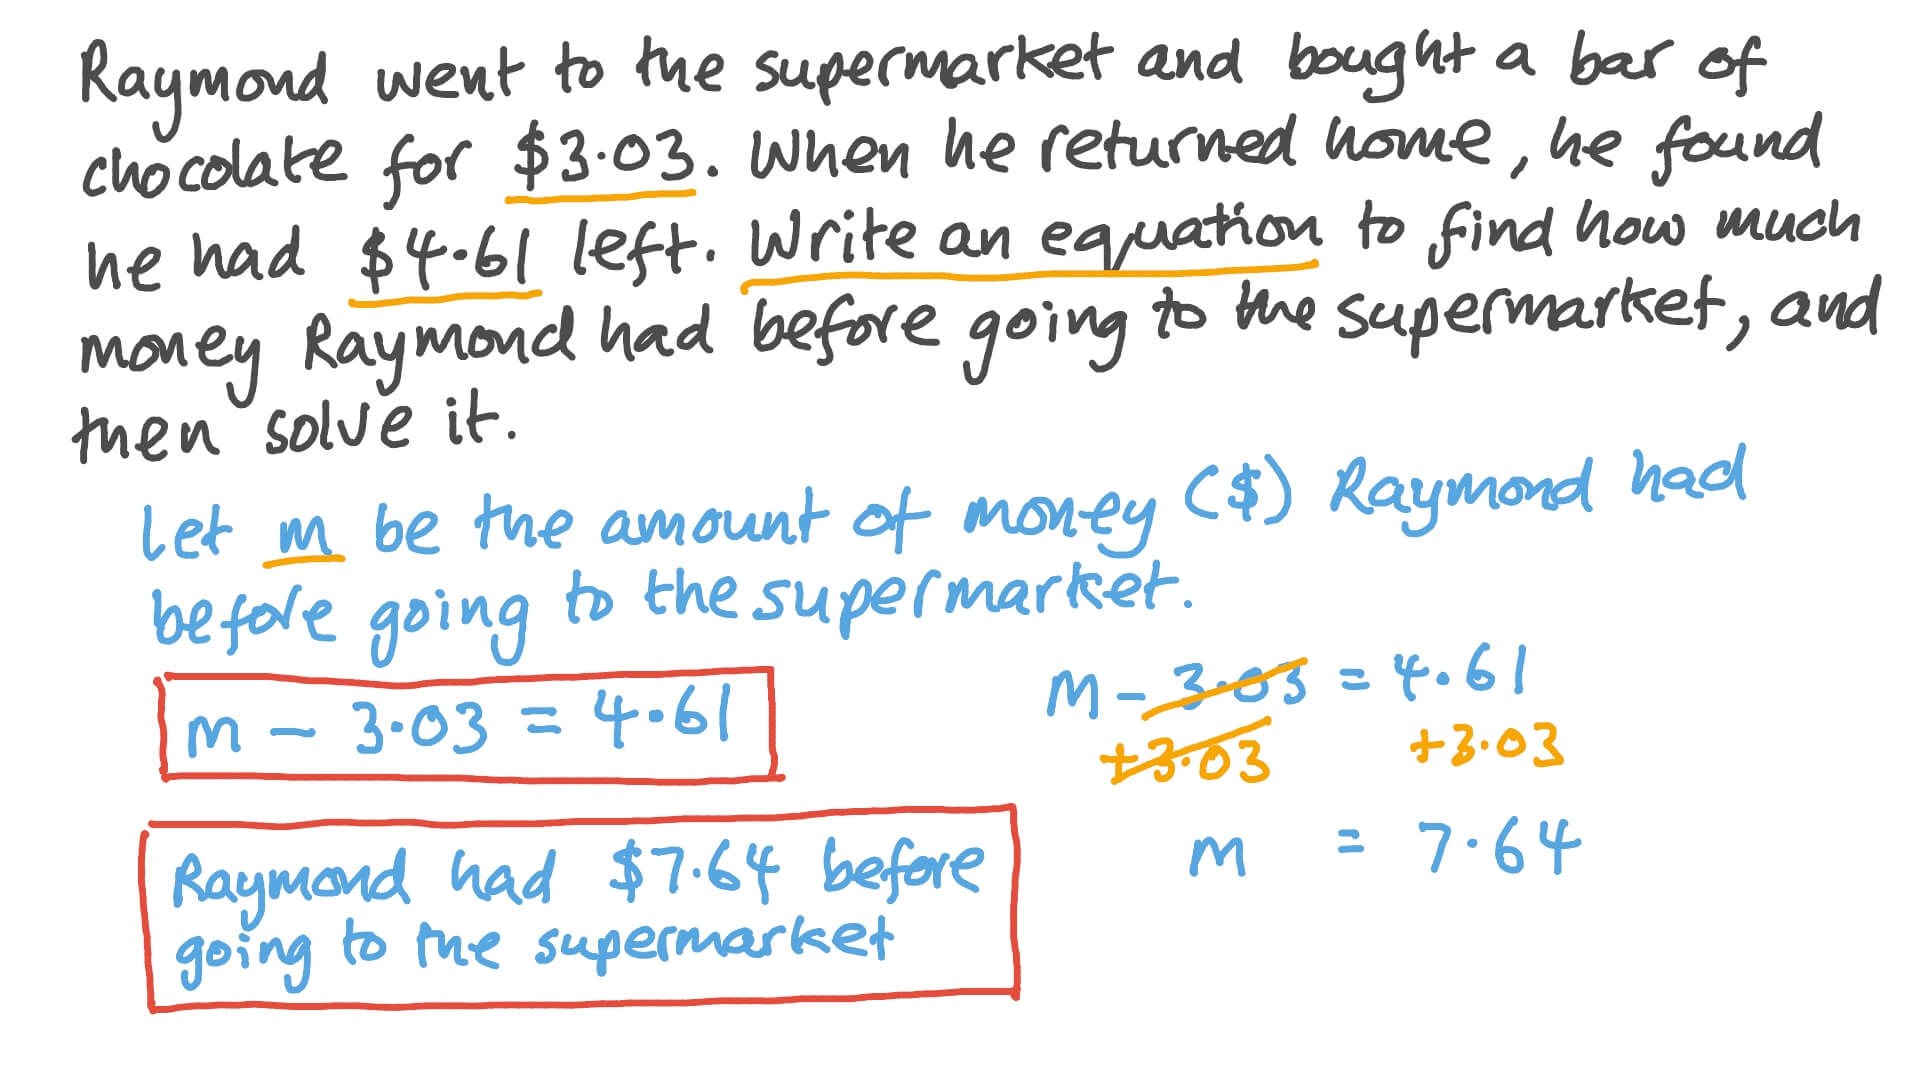 Raymond went to the supermarket and bought a bar of
chocolate for $3.03. When he returned home, he found
he had $4.61 left. Write an equation to find how much
money Raymond had before going to the supermarket, and
then solve it.
Let m be the amount of money ($) Raymond had
before going to the supermarket.
m - 3.03 = 4.61
m - 3.03 = 4.61
+3.03 +3.03
m = 7.64
Raymond had $7.64 before
going to the supermarket